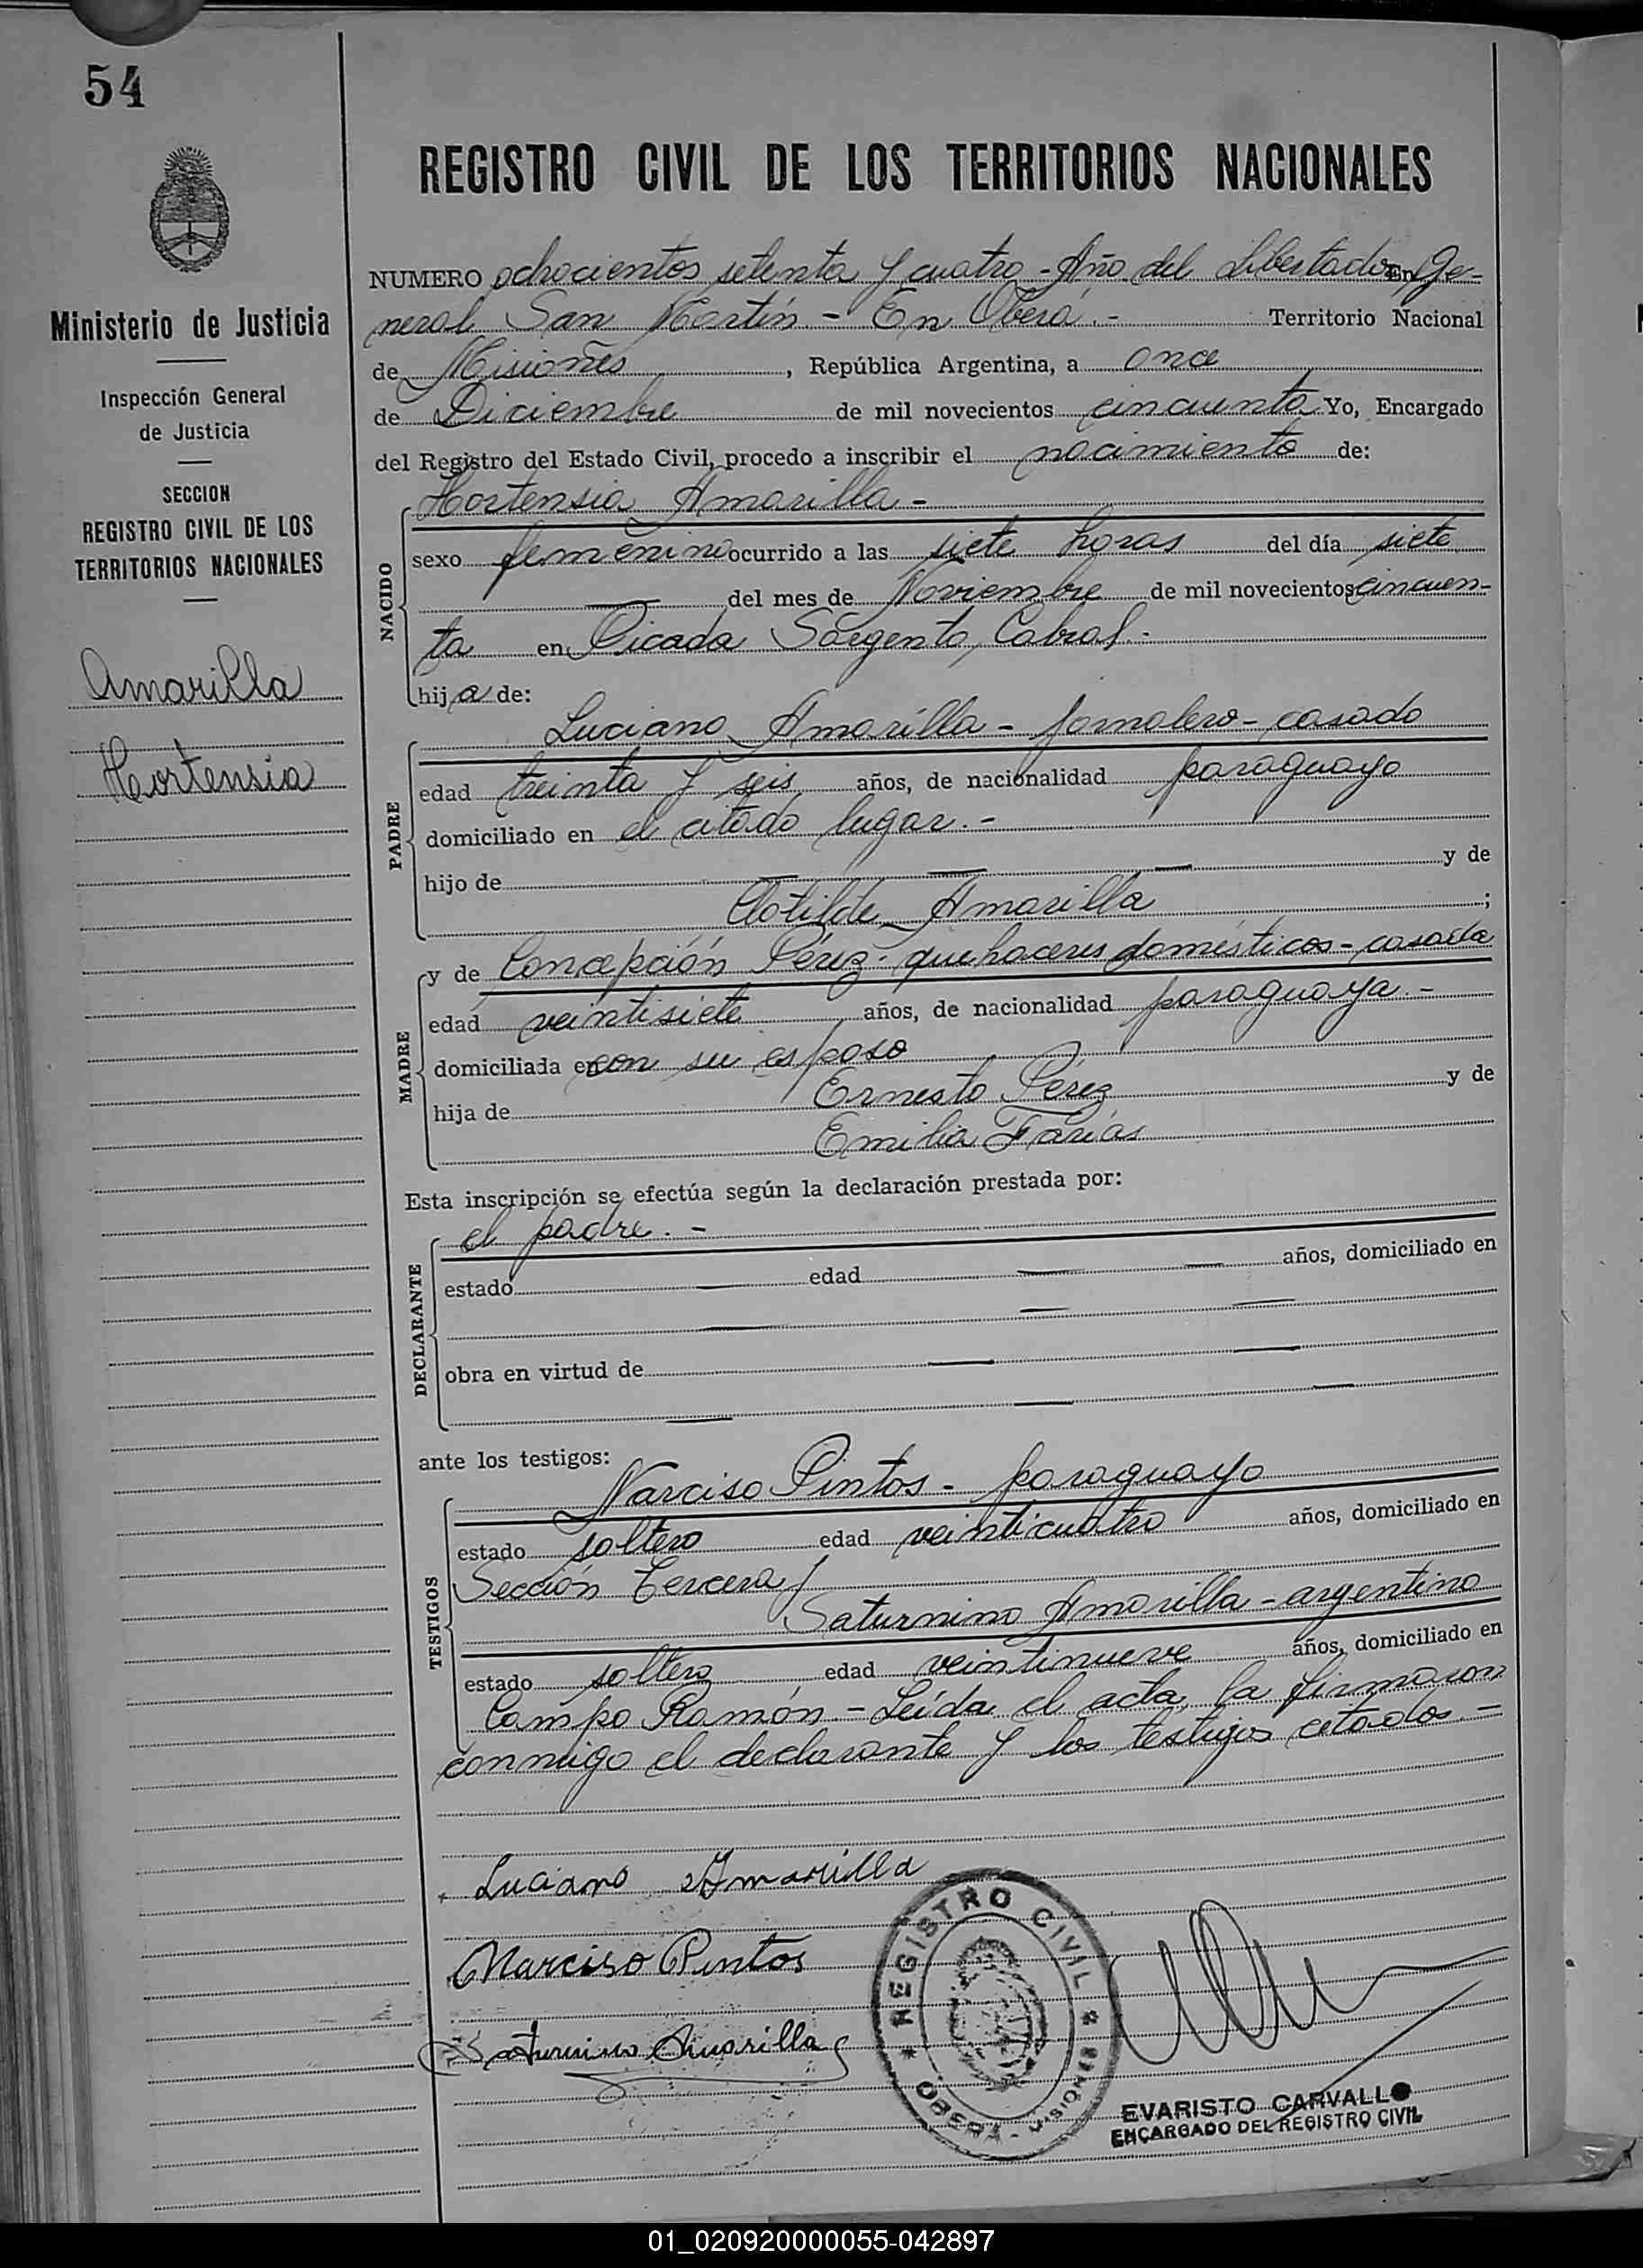 54
Ministerio de Justicia
Inspección General
de Justicia
SECCION
REGISTRO CIVIL DE LOS
TERRITORIOS NACIONALES
Amarilla
Hortensia
REGISTRO CIVIL DE LOS TERRITORIOS NACIONALES
NUMERO ochocientos setenta y cuatro - Año del Libertador En Ge-
neral San Martín. - En Oberá. - Territorio Nacional
de Misiones, República Argentina, a once
de Diciembre de mil novecientos cincuenta Yo, Encargado
del Registro del Estado Civil, procedo a inscribir el nacimiento de:
Hortensia Amarilla -
NACIDO
sexo femenino ocurrido a las siete horas del día siete
del mes de Noviembre de mil novecientos cincuen-
ta en Picada Sargento Cabral. -
hija de:
PADRE
Luciano Amarilla - jornalero - casado
edad treinta y seis años, de nacionalidad paraguayo
domiciliado en el citado lugar. -
hijo de — — — y de
Clotilde Amarilla ;
MADRE
y de Concepción Pérez - quehaceres domésticos - casada
edad veintisiete años, de nacionalidad paraguaya. -
domiciliada en con su esposo
hija de Ernesto Pérez y de
Emilia Farías
Esta inscripción se efectúa según la declaración prestada por:
DECLARANTE
el padre. -
estado — edad — — años, domiciliado en
— — —
obra en virtud de — —
— — —
ante los testigos:
TESTIGOS
Narciso Pintos - paraguayo
estado soltero edad veinticuatro años, domiciliado en
Sección Tercera y
Saturnino Amarilla - argentino
estado soltero edad veintinueve años, domiciliado en
Campo Ramón. - Leída el acta, la firmaron
conmigo el declarante y los testigos citados. -
Luciano Amarilla
Narciso Pintos
Saturnino Amarilla
REGISTRO CIVIL
OBERA - MISIONES
EVARISTO CARVALLO
ENCARGADO DEL REGISTRO CIVIL
01_020920000055-042897